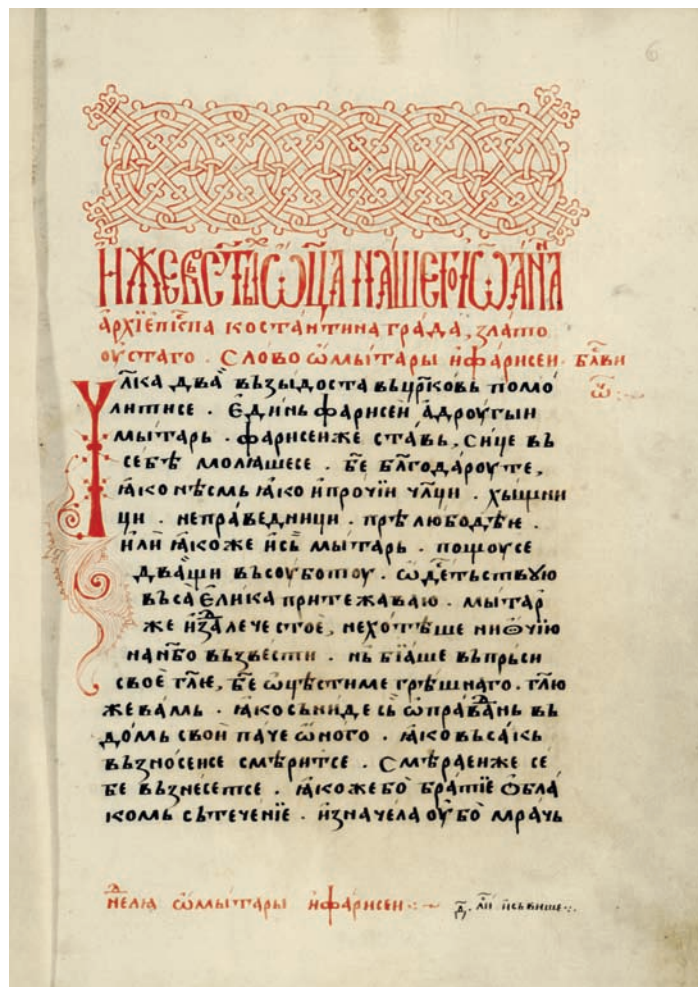 6
И҆́ЖЕ ВЪ СТ҃Ыⷯ Ѡ҆Ц҃А НАШЕГО ІѠ҆АНА
архїепⷭ҇кпа костантина града, злато
оустаго · Слово ѡ҆ мытары и҆ фарисеи · блⷭ҇ви
ѿ :~
Чл҃ка два̀ възыдоста въ цр҃ковь помо
литисе · Е҆динь фарисеи а҆ дроугыи
мытарь · фарисеи же ставь, сице въ
себѣ молꙗшесе · бе҃ бл҃годароу те,
ꙗко нѣсмь ꙗко и҆ прочїи чл҃ци · хыщни
ци · неправедници · прѣлюбодѣи ·
или̏ ꙗкоже и҆ съ̏ мытарь · пощоусе
два̀щи въ соуботоу · ѡ҆деⷭ҇тьствую
въса̀ е҆лика притежаваю · мытар
же и҆з̾далече стое, не хотѣше ни ѻ҆чїю
на нб҃о възвести · нь бїꙗше въ прьси
свое̏ гл҃ѥ, бе҃ ѡ҆цѣсти ме грѣшнаго · гл҃ю
же вамь · ꙗко сьниде сь ѡ҆правда̀нь въ
до́мь свои паче ѡ҆ного · ꙗко въса́кь
възносеисе смѣритсе · Смѣраеи же се
бе възнесетсе · ꙗкоже бо̀ братїе ѻ҆бла
комь сътеченїе · и҆значела оу҆бо̀ мрачь
неⷣлꙗ ѡ҆ мытары и҆ фарисеи :~